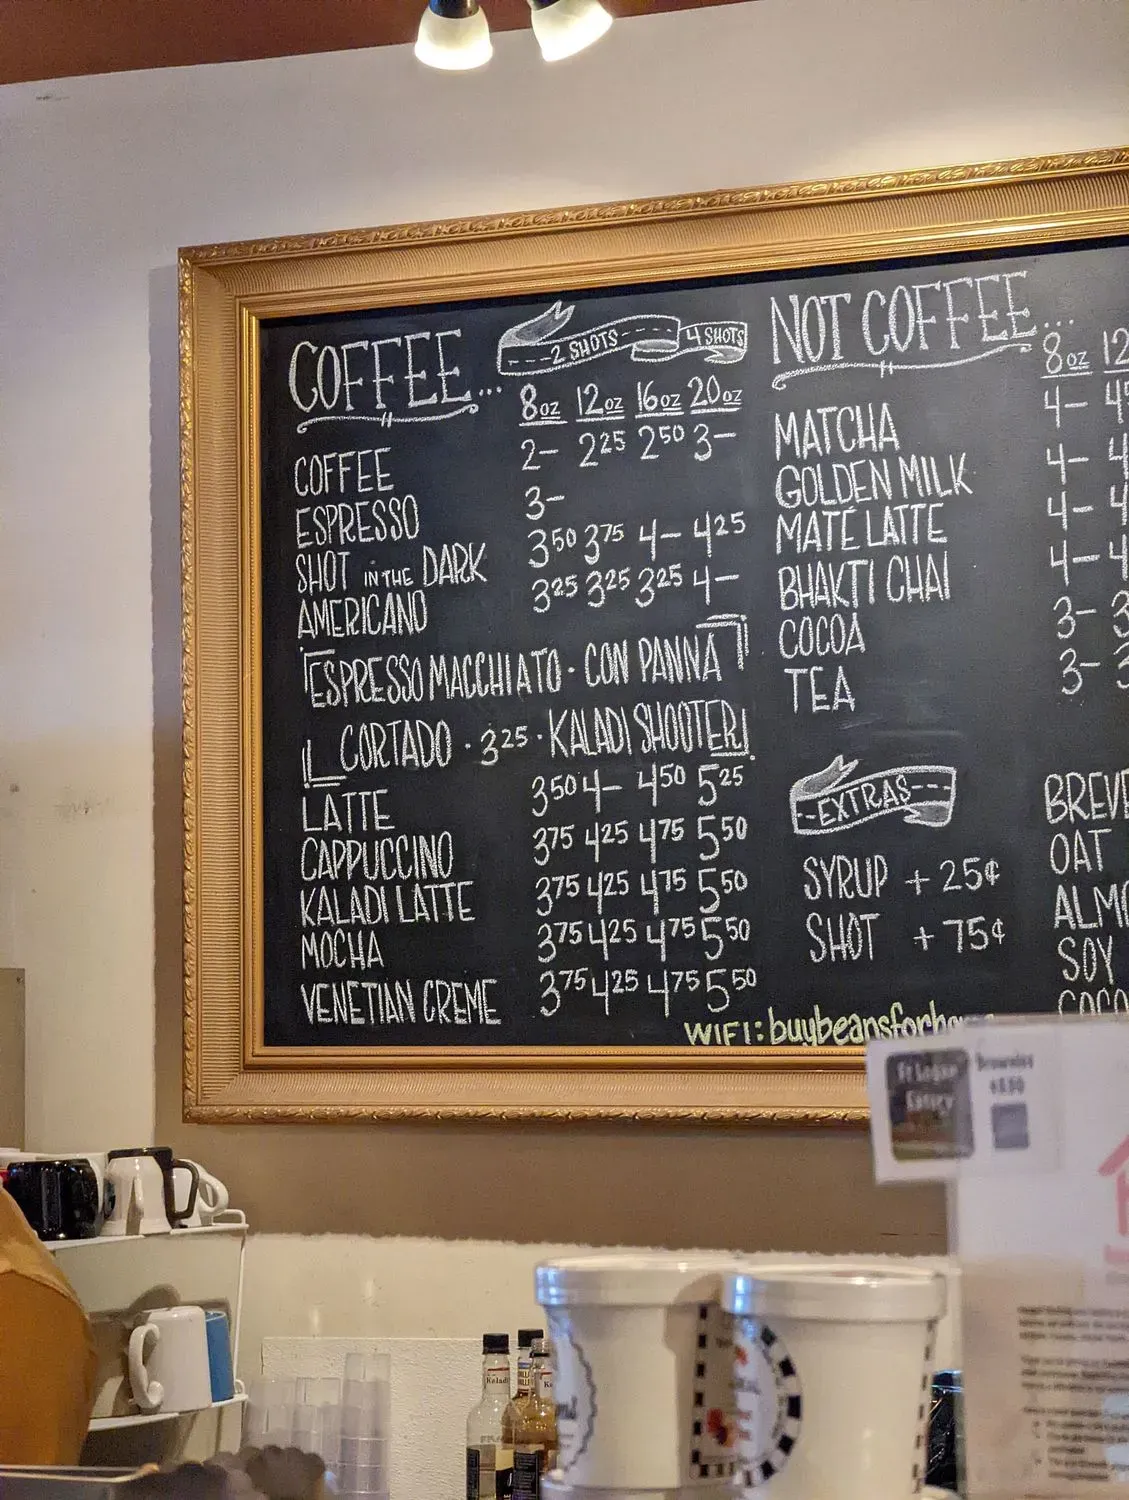 COFFEE...
2 SHOTS 4 SHOTS
8oz 12oz 16oz 20oz
COFFEE 2— 2.25 2.50 3—
ESPRESSO 3—
SHOT IN THE DARK 3.50 3.75 4— 4.25
AMERICANO 3.25 3.25 3.25 4—
ESPRESSO MACCHIATO · CON PANNA
CORTADO · 3.25 · KALADI SHOOTER
LATTE 3.50 4— 4.50 5.25
CAPPUCCINO 3.75 4.25 4.75 5.50
KALADI LATTE 3.75 4.25 4.75 5.50
MOCHA 3.75 4.25 4.75 5.50
VENETIAN CREME 3.75 4.25 4.75 5.50
NOT COFFEE...
8oz 12
MATCHA 4—
GOLDEN MILK 4—
MATÉ LATTE 4—
BHAKTI CHAI 4—
COCOA 3—
TEA 3—
EXTRAS
SYRUP + 25¢
SHOT + 75¢
BREVE
OAT
ALMO
SOY
COCO
WIFI: buybeansforho
Brownies